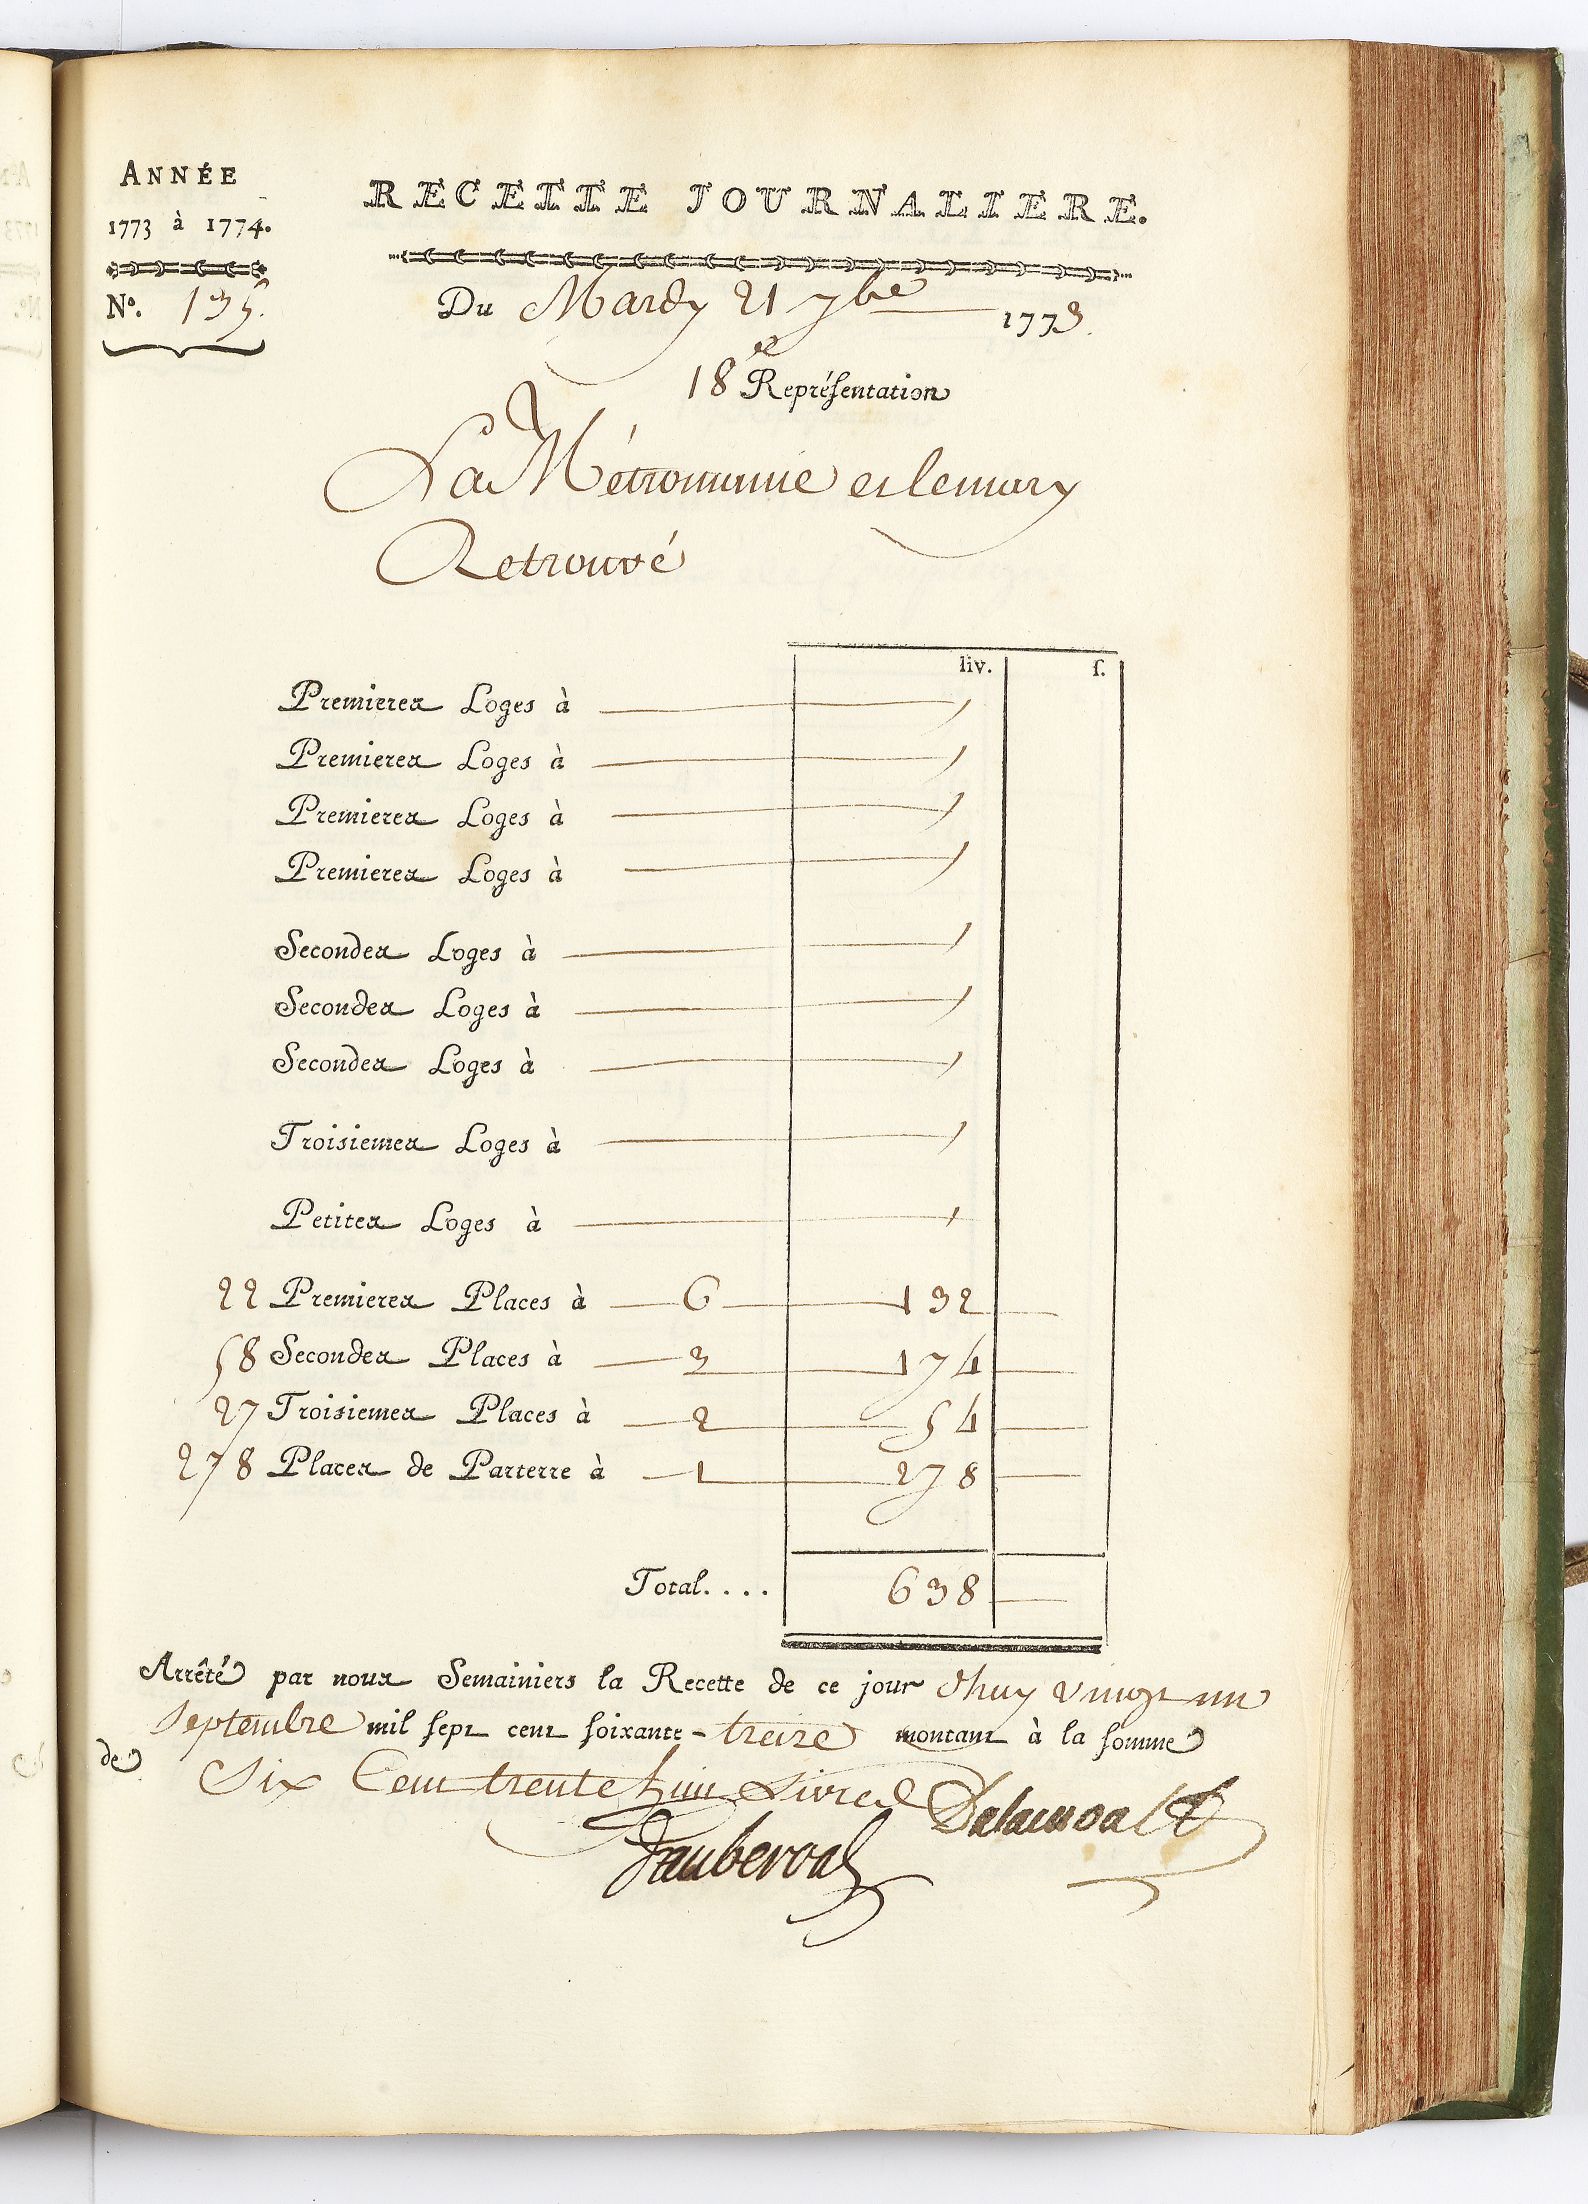 ANNÉE
1773 à 1774.
N.o 135.
RECETTE JOURNALIERE.
Du Mardy 21 7bre 1773.
18e Représentation
La Métromanie et le mary
Retrouvé
liv. s.
Premieres Loges à
Premieres Loges à
Premieres Loges à
Premieres Loges à
Secondes Loges à
Secondes Loges à
Secondes Loges à
Troisiemes Loges à
Petites Loges à
22 Premieres Places à 6 132
58 Secondes Places à 3 174
27 Troisiemes Places à 2 54
278 Places de Parterre à 1 278
Total.... 638
Arrêté par nous Semainiers la Recette de ce jour d'huy vingt un
Septembre mil sept cent soixante-treize montant à la somme
de Six Cent trente huit Livres
Dauberval